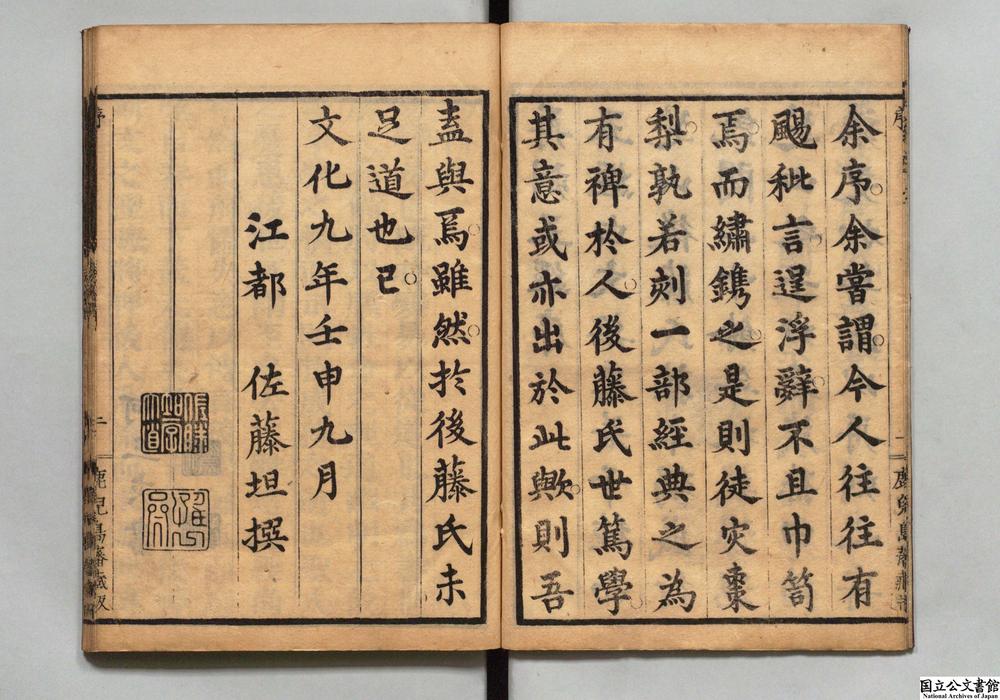 余序余嘗謂今人往往有
颺秕言逞浮辭不且巾笥
焉而繡鐫之是則徒灾棗
梨孰若刻一部經典之為
有裨於人後藤氏世篤學
其意或亦出於此歟則吾
盍與焉雖然於後藤氏未
足道也已
文化九年壬申九月
江都 佐藤坦撰
序
二
鹿児島藩蔵板
国立公文書館
National Archives of Japan